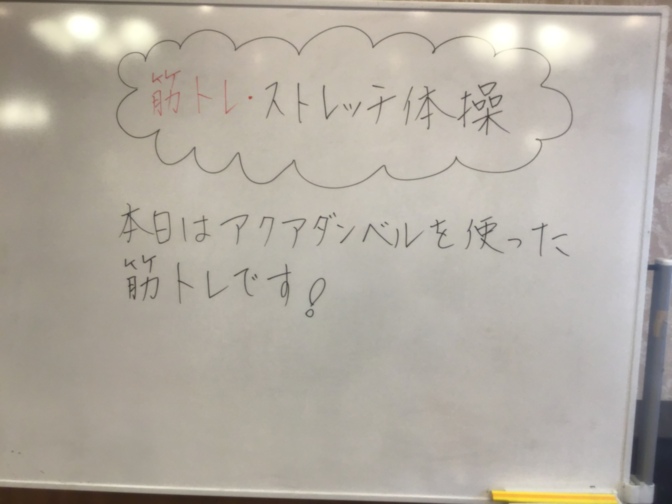 筋トレ・ストレッチ体操
本日はアクアダンベルを使った
筋トレです!